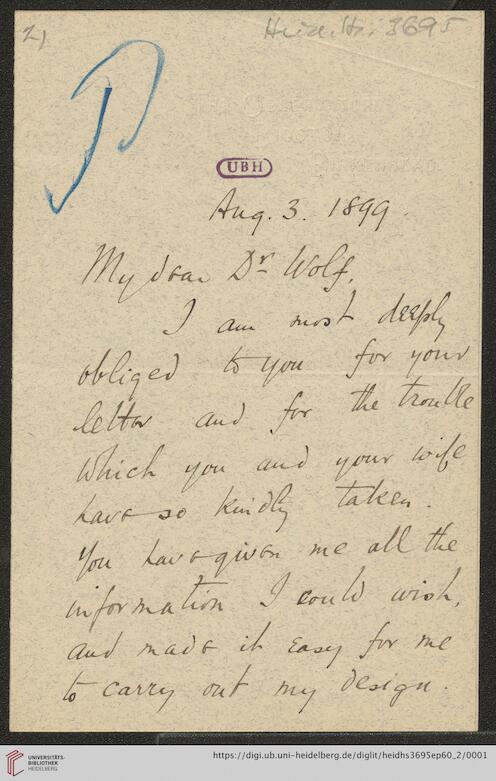 2)
Heid. Hs. 3695
UBH
Aug. 3. 1899.
My dear Dr Wolf,
I am most deeply
obliged to you for your
letter and for the trouble
which you and your wife
have so kindly taken.
You have given me all the
information I could wish,
and made it easy for me
to carry out my design.
UNIVERSITÄTS-
BIBLIOTHEK
HEIDELBERG
https://digi.ub.uni-heidelberg.de/diglit/heidhs3695ep60_2/0001